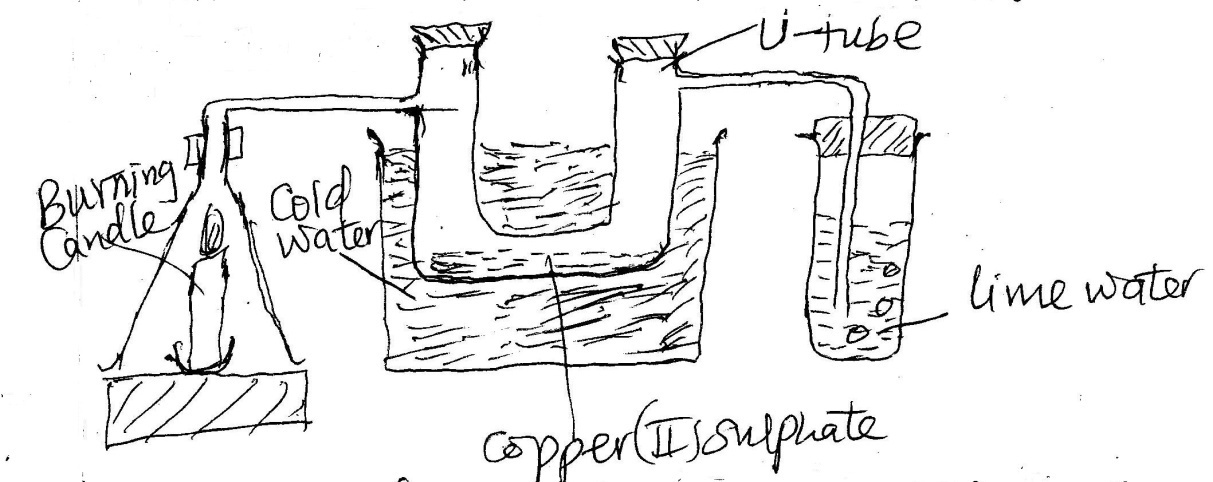 U-tube
Burning
Candle
Cold
water
lime water
Copper(II)sulphate